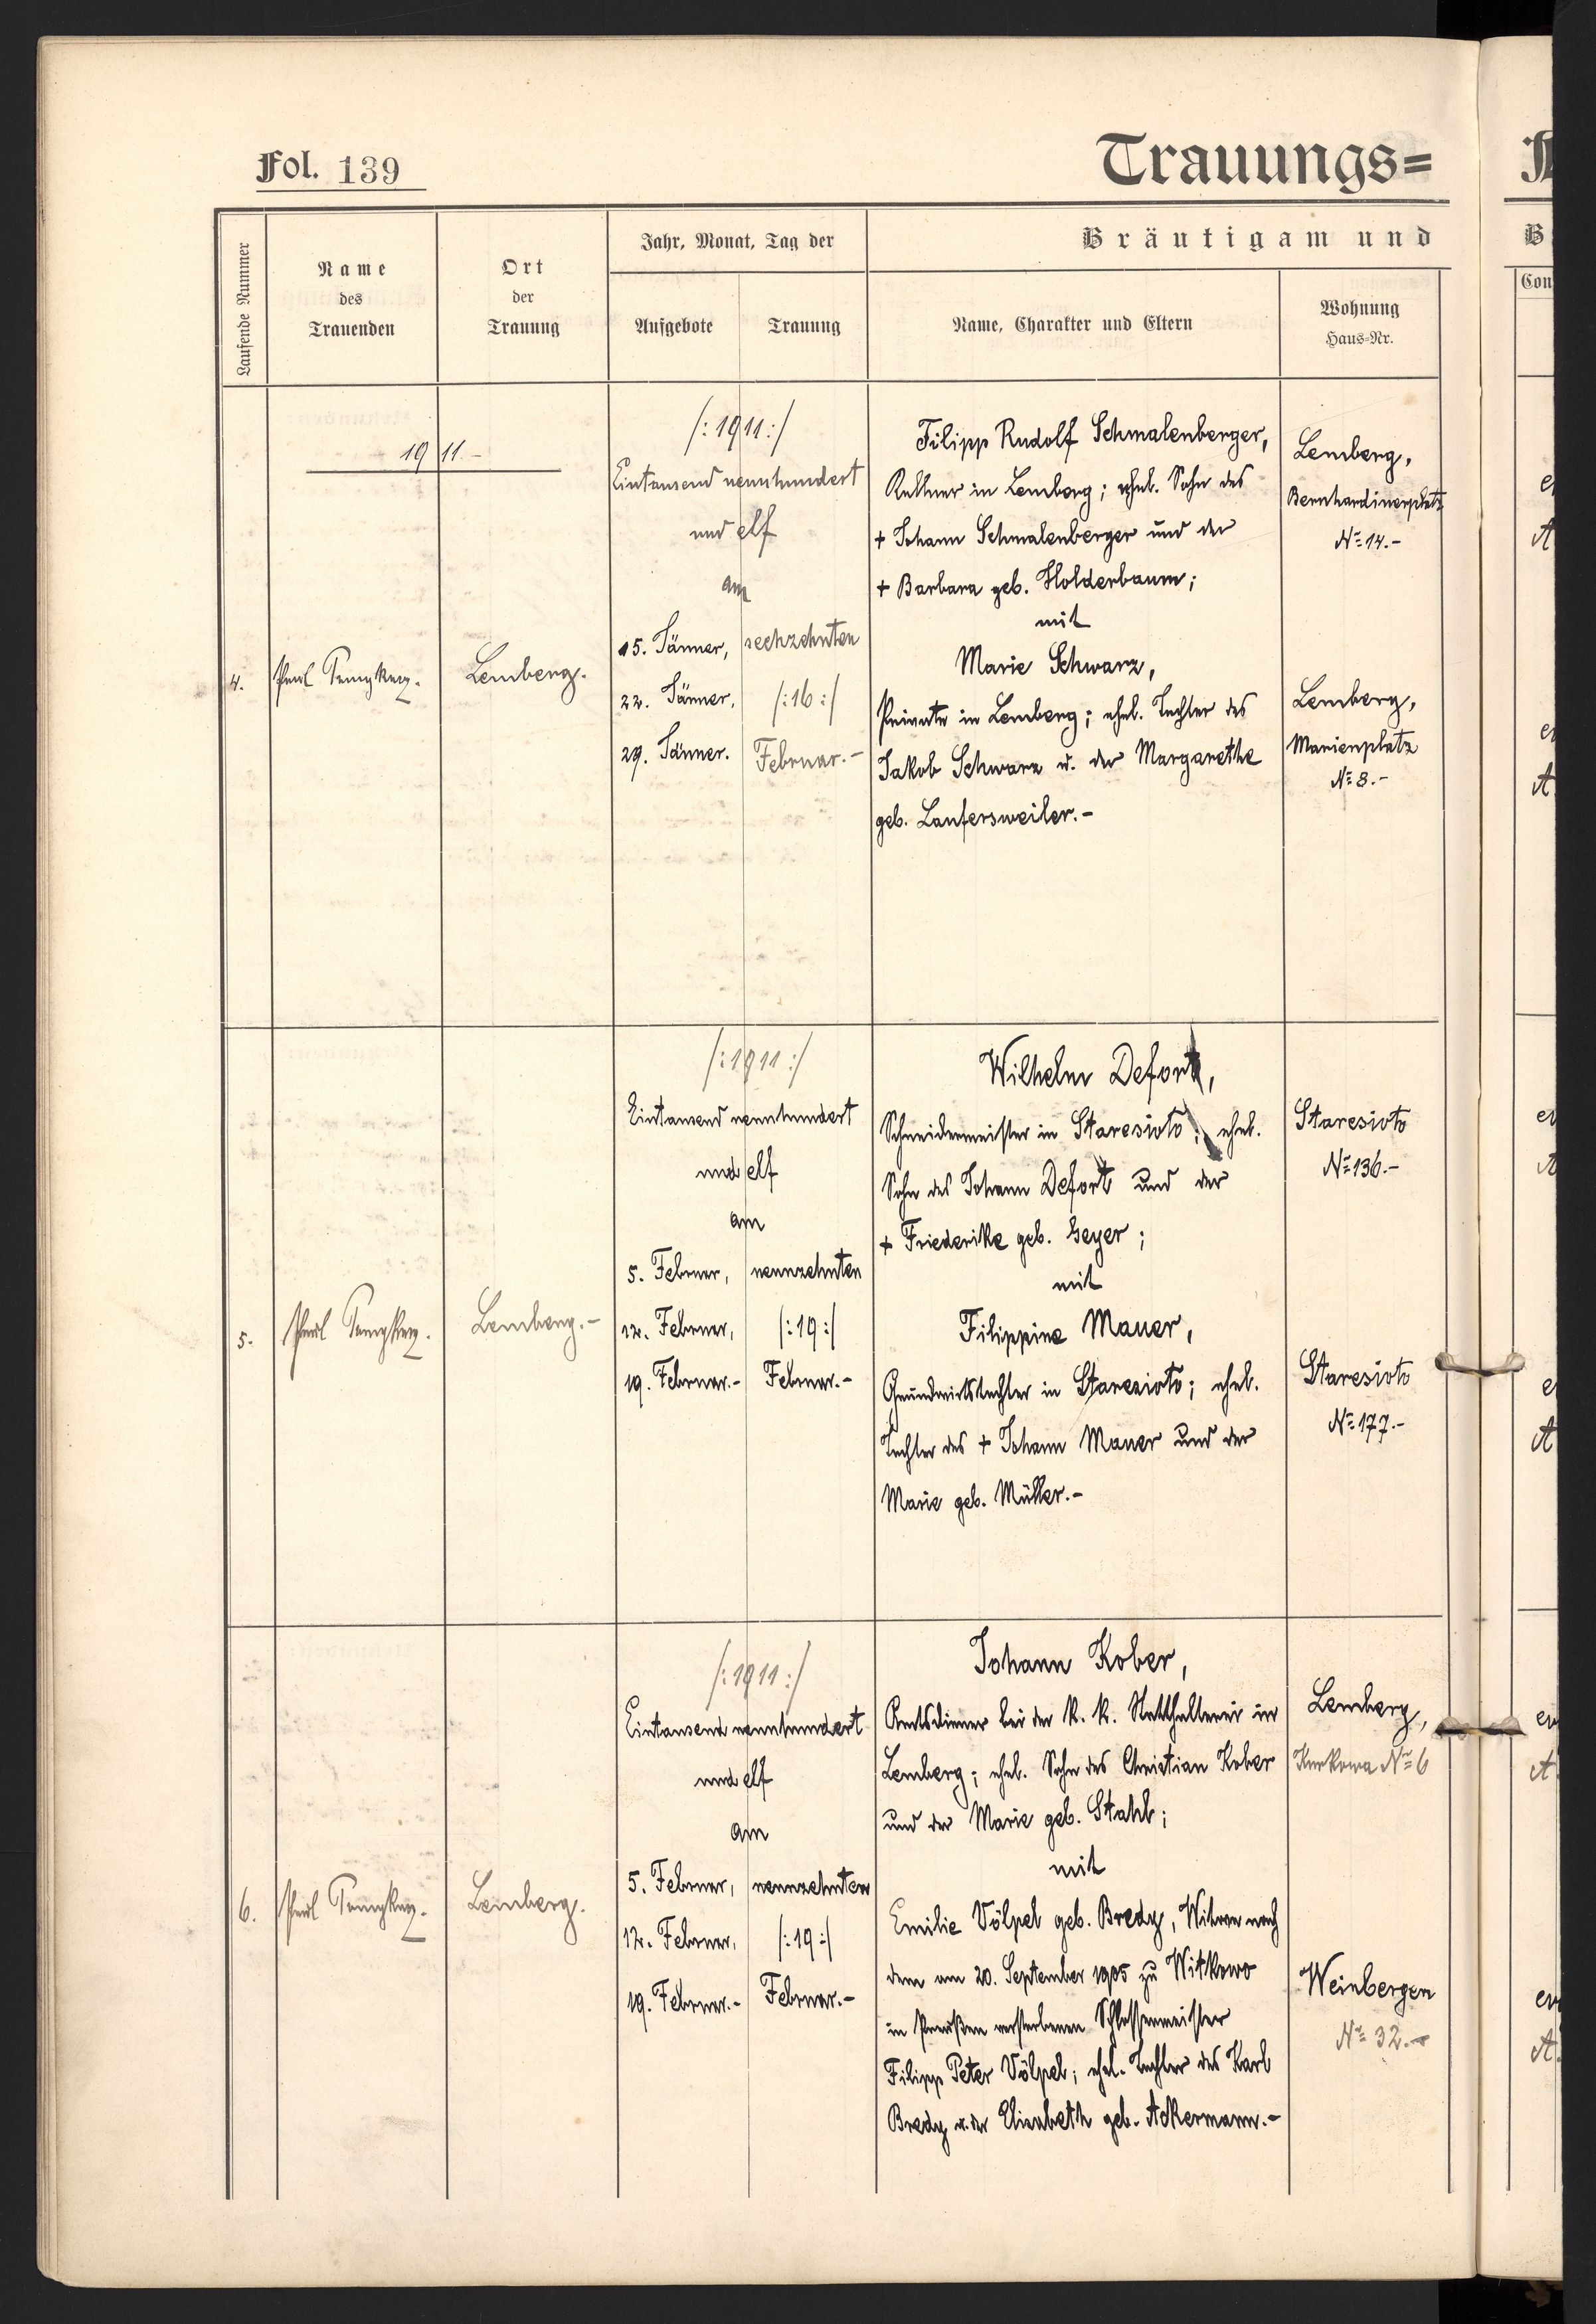 Fol. 139
Trauungs=
Laufende Nummer
Name
des
Trauenden
Ort
der
Trauung
Jahr, Monat, Tag der
Aufgebote
Trauung
Bräutigam und
Name, Charakter und Eltern
Wohnung
Haus-Nr.
Con
1911.-
4.
Lemberg.
/:1911:/
Eintausend neunhundert
und elf
am
15. Jänner,
22. Jänner,
29. Jänner.
sechzehnten
/:16:/
Februar.-
Filipp Rudolf Schmalenberger,
Kellner in Lemberg; ehel. Sohn des
+ Johann Schmalenberger und der
+ Barbara geb. Holderbaum;
mit
Marie Schwarz,
Private in Lemberg; ehel. Tochter des
Jakob Schwarz u. der Margarethe
geb. Laufersweiler.-
Lemberg,
Bernhardinerplatz
No 14.-
Lemberg,
Marienplatz
No 8.-
5.
Lemberg.-
/:1911:/
Eintausend neunhundert
und elf
am
5. Februar,
12. Februar,
19. Februar.-
neunzehnten
/:19:/
Februar.-
Wilhelm Defort,
Schneidermeister in Staresioto; ehel.
Sohn des Johann Defort und der
+ Friederike geb. Geyer;
mit
Filippine Mauer,
Grundwirtstochter in Staresioto; ehel.
Tochter des + Johann Mauer und der
Marie geb. Müller.-
Staresioto
No 136.-
Staresioto
No 177.-
6.
Lemberg.
/:1911:/
Eintausend neunhundert
und elf
am
5. Februar,
12. Februar,
19. Februar.-
neunzehnten
/:19:/
Februar.-
Johann Kober,
Amtsdiener bei der k. k. Statthalterei in
Lemberg; ehel. Sohn des Christian Kober
und der Marie geb. Stahl;
mit
Emilie Völpel geb. Bredy, Witwe nach
dem am 20. September 1905 zu Witkowo
in Preußen verstorbenen Schlossermeister
Filipp Peter Völpel; ehel. Tochter des Karl
Bredy u. der Elisabeth geb. Ackermann.-
Lemberg,
Kurkowa No 6
Weinbergen
No 32.-